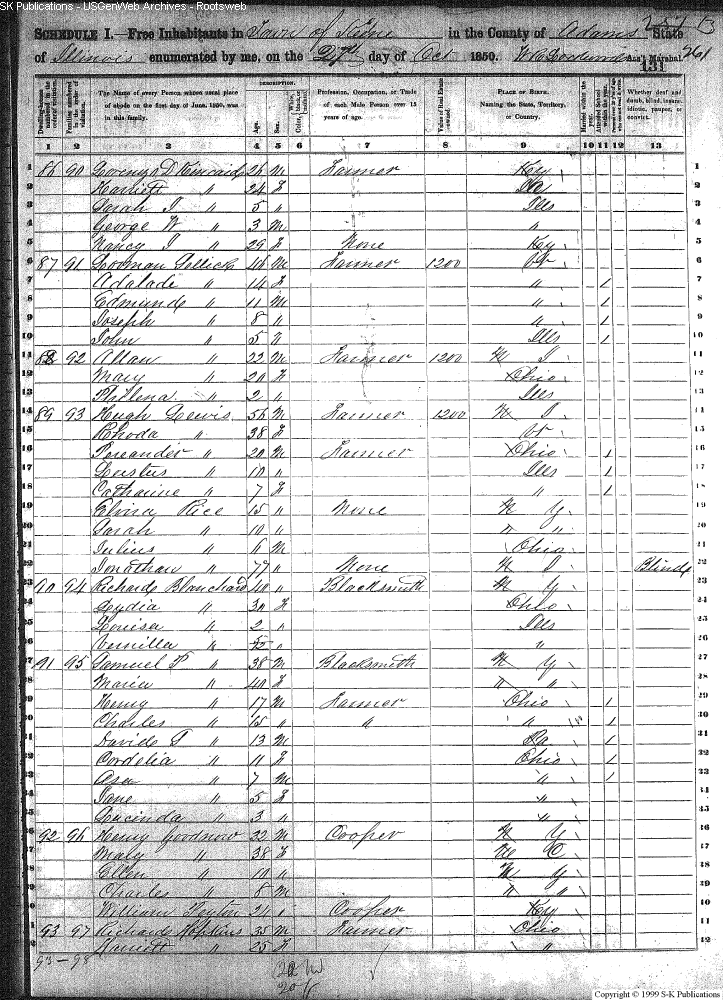 SK Publications - USGenWeb Archives - Rootsweb
SCHEDULE I.—Free Inhabitants in Town of in the County of Adams State
of Illinois enumerated by me, on the 27th day of Oct 1850. Ass't Marshal. 261
131
Dwelling-houses numbered in the order of visitation.
Families numbered in the order of visitation.
The Name of every Person whose usual place of abode on the first day of June, 1850, was in this family.
DESCRIPTION.
Age.
Sex.
Color, White, black, or mulatto.
Profession, Occupation, or Trade of each Male Person over 15 years of age.
Value of Real Estate owned.
PLACE OF BIRTH. Naming the State, Territory, or Country.
Married within the year.
Attended School within the year.
Whether deaf and dumb, blind, insane, idiotic, pauper, or convict.
1 2 3 4 5 6 7 8 9 10 11 12 13
1 86 90 D Kincaid 26 M Farmer Key 1
2 Harriett " 24 F Pa 2
3 Sarah J " 5 " Ills 3
4 George W " 3 M " 4
5 Nancy J " 29 F None Key 5
6 87 91 46 M Farmer 1200 Vt 6
7 Adalade " 14 F " 7
8 Edmund " 11 M " 1 8
9 Joseph " 8 " " 1 9
10 John " 5 " Ills 1 10
11 88 92 Allan " 22 M Farmer 1200 11
12 Mary " 20 F Ohio 12
13 Philena " 2 " Ills 13
14 89 93 Hugh Lewis 56 M Farmer 1200 14
15 Rhoda " 38 F Vt 15
16 " 20 M Farmer Ohio 1 16
17 " 10 " Ills 1 17
18 Catharine " 7 F " 1 18
19 Elvira Rice 15 " None N Y 19
20 Sarah " 10 " " " 20
21 Julius " 6 M Ohio 21
22 Jonathan " 77 " None Blind 22
23 90 94 Richard Blanchard 40 " Blacksmith N Y 23
24 Lydia " 30 F Ohio 24
25 Louisa " 2 " Ills 25
26 " " " 26
27 91 95 Samuel P " 38 M Blacksmith N Y 27
28 Maria " 40 F " " 28
29 Henry " 17 M Farmer Ohio 1 29
30 Charles " 15 " " " 1 30
31 David T " 13 M Pa 1 31
32 Cordelia " 11 F Ohio 1 32
33 Asa " 7 M " 1 33
34 Jane " 5 F " 34
35 Lucinda " 3 " " 35
36 92 96 Henry Goodnow 32 M Cooper N Y
Mary " 38 F N C
Ellen " 10 " N Y
Charles " 8 M " "
William 21 " Cooper Key
93 97 Richard Hopkins 35 M Farmer Ohio
Harriett " 25 F "
93 - 98
22 M
20 f
Copyright © 1999 S-K Publications